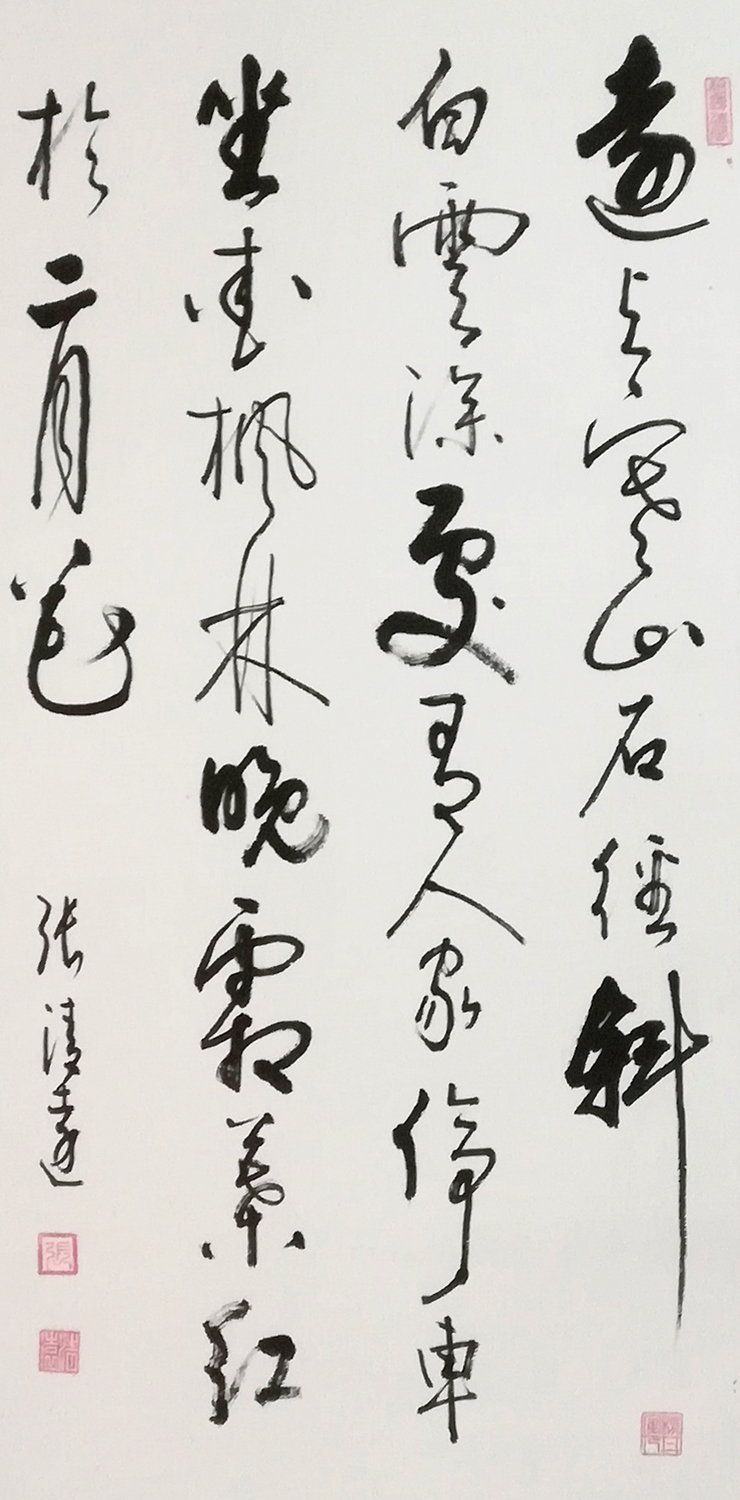 遠上寒山石徑斜
白雲深處有人家停車
坐愛楓林晚霜葉紅
於二月花
張清遠
張